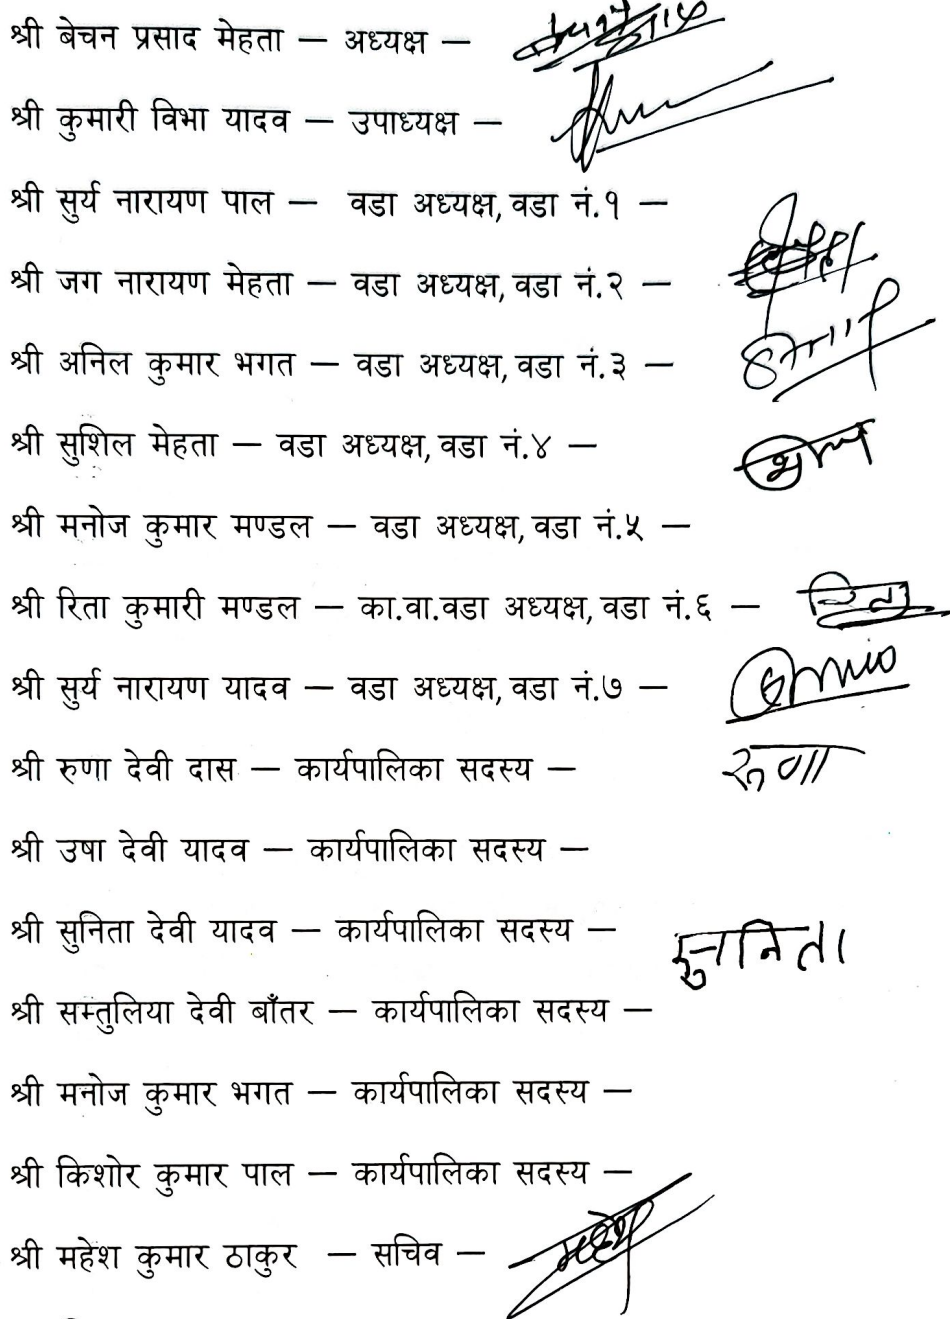 श्री बेचन प्रसाद मेहता — अध्यक्ष —
श्री कुमारी विभा यादव — उपाध्यक्ष —
श्री सुर्य नारायण पाल — वडा अध्यक्ष, वडा नं.१ —
श्री जग नारायण मेहता — वडा अध्यक्ष, वडा नं.२ —
श्री अनिल कुमार भगत — वडा अध्यक्ष, वडा नं.३ —
श्री सुशिल मेहता — वडा अध्यक्ष, वडा नं.४ —
श्री मनोज कुमार मण्डल — वडा अध्यक्ष, वडा नं.५ —
श्री रिता कुमारी मण्डल — का.वा.वडा अध्यक्ष, वडा नं.६ — रिता
श्री सुर्य नारायण यादव — वडा अध्यक्ष, वडा नं.७ —
श्री रुणा देवी दास — कार्यपालिका सदस्य — रूणा
श्री उषा देवी यादव — कार्यपालिका सदस्य —
श्री सुनिता देवी यादव — कार्यपालिका सदस्य — सुनिता
श्री सम्तुलिया देवी बाँतर — कार्यपालिका सदस्य —
श्री मनोज कुमार भगत — कार्यपालिका सदस्य —
श्री किशोर कुमार पाल — कार्यपालिका सदस्य —
श्री महेश कुमार ठाकुर — सचिव — महेश